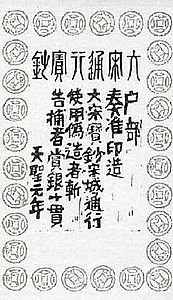 大宋通行寶鈔
户部
奏准印造
大宋鈔城通行
使用偽造者斬
告捕者賞銀十貫
天聖元年